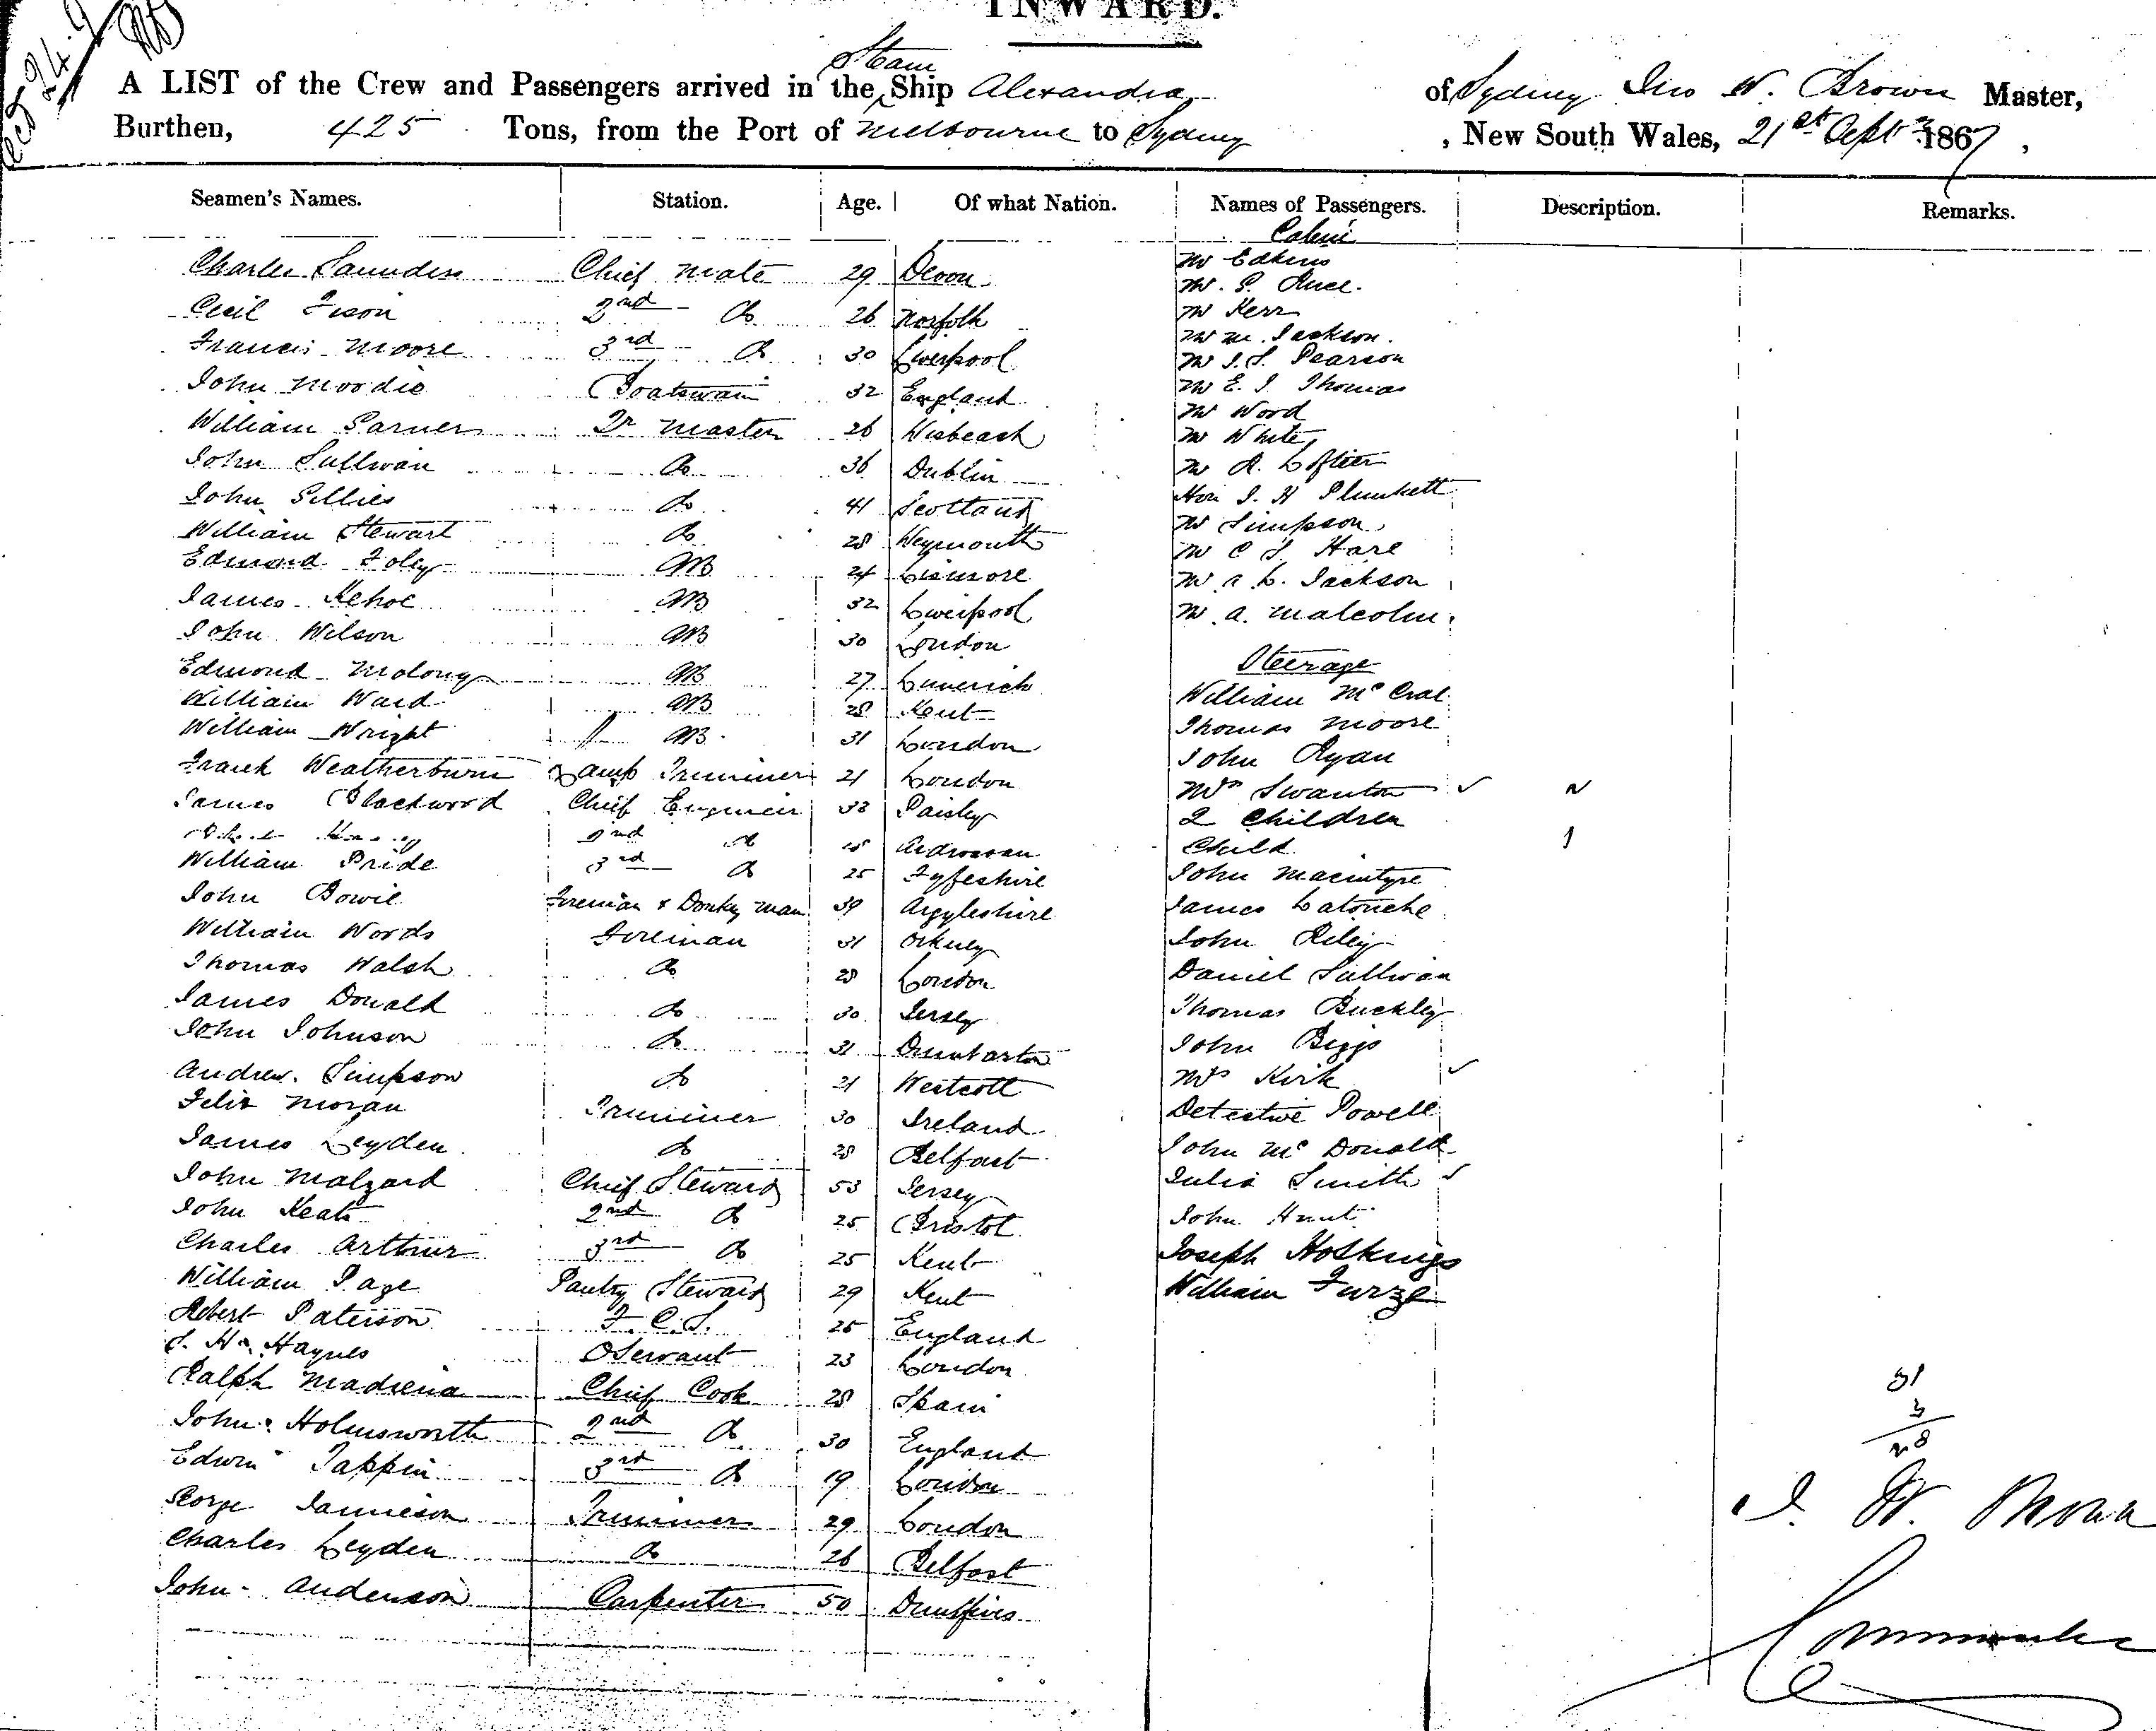 INWARD.
A LIST of the Crew and Passengers arrived in the Steam Ship Alexandra of Sydney Jno W. Brown Master,
Burthen, 425 Tons, from the Port of Melbourne to Sydney , New South Wales, 21st Sept 1867,
Seamen's Names. Station. Age. Of what Nation. Names of Passengers. Description. Remarks.
Cabin
Charles Saunders Chief Mate 29 Devon Mr Edkins
Mr. S.
Cecil Fison 2nd Do 26 Norfolk Mr Kerr
Mr M. Jackson.
Francis Moore 3rd Do 30 Liverpool Mr J. S. Pearson
John Moodie Boatswain 32 England Mr E. J. Thomas
Mr Wood
William Garner Qr Master 26 Wisbeach Mr White
John Sullivan Do 36 Dublin Mr A. Loftier
John Gillies Do 41 Scotland Hon J. H Plunkett
William Stewart Do 28 Weymouth Mr Simpson
Edmond Foley AB 24 Lismore Mr C S. Hare
James Kehoe AB 32 Liverpool Mr A. L. Jackson
John Wilson AB 30 London Mr A. Malcolm
Edmond Molony AB 27 Limerick Steerage
William Ward AB 28 Kent William McCral
William Wright AB 31 London Thomas Moore
Frank Weatherburn Lamp Trimmer 21 London John Ryan
James Blackwood Chief Engineer 38 Paisley Mrs Swanton
2 Children
2nd Do Ardrossan Child 1
William Pride 3rd Do 25 Fyfeshire John Macintyre
John Bowie Fireman & Donkey man 39 Argyleshire James Latouche
William Words Fireman 31 Orkney John Riley
Thomas Walsh Do 28 London Daniel Sullivan
James Donald Do 30 Jersey Thomas Buckley
John Johnson Do 31 Dumbarton John Biggs
Andrew Simpson Do 21 Westcott Mrs Kirk
Felix Moran Trimmer 30 Ireland Detective Powell
James Leyden Do 28 Belfast John McDonald
John Malzard Chief Steward 53 Jersey Julia Smith
John Keats 2nd Do 25 Bristol John Hunt
Charles Arthur 3rd Do 25 Kent Joseph Hoskings
William Page Pantry Steward 29 Kent William Furze
Robert Paterson F. C. S. 25 England
S. H. Haynes O Servant 23 London
Ralph Madiena Chief Cook 28 Spain 31
John Holmsworth 2nd Do 30 England 3
28
Edwin Tappin 3rd Do 19 London
George Jamieson Trimmer 29 London J. W. Brown
Charles Leyden Do 26 Belfast
John Anderson Carpenter 50 Dumfries
Commander